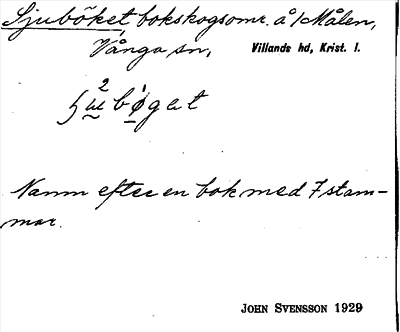 Sjuböket bokskogsomr. å /Målen,
Vånga sn, Villands hd, Krist. l.
2
bǿget
Namn efter en bok med 7 stam-
mar.
JOHN SVENSSON 1929